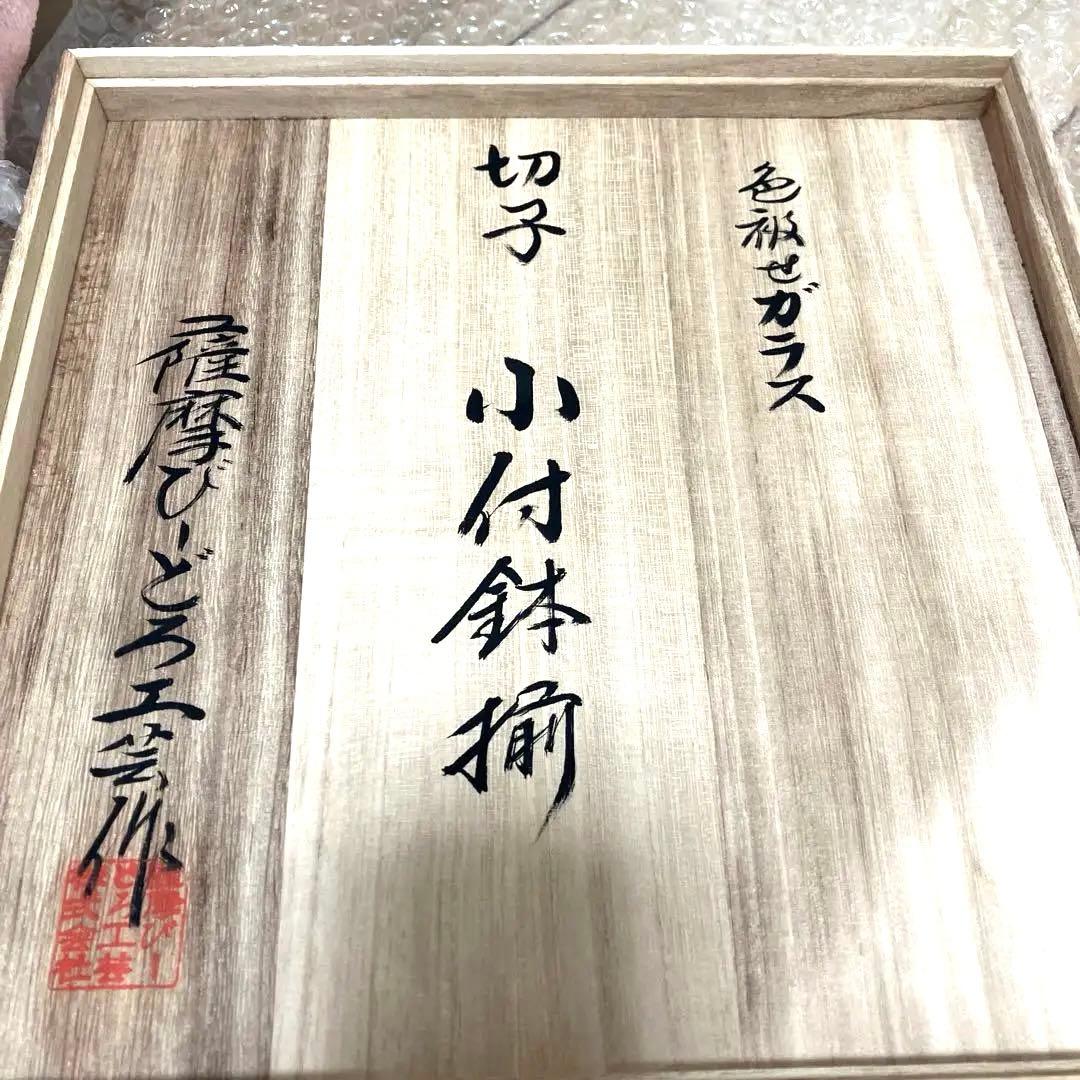 色被せガラス
切子 小付鉢揃
薩摩びーどろ工芸作
薩摩びー
どろ工芸
株式会社